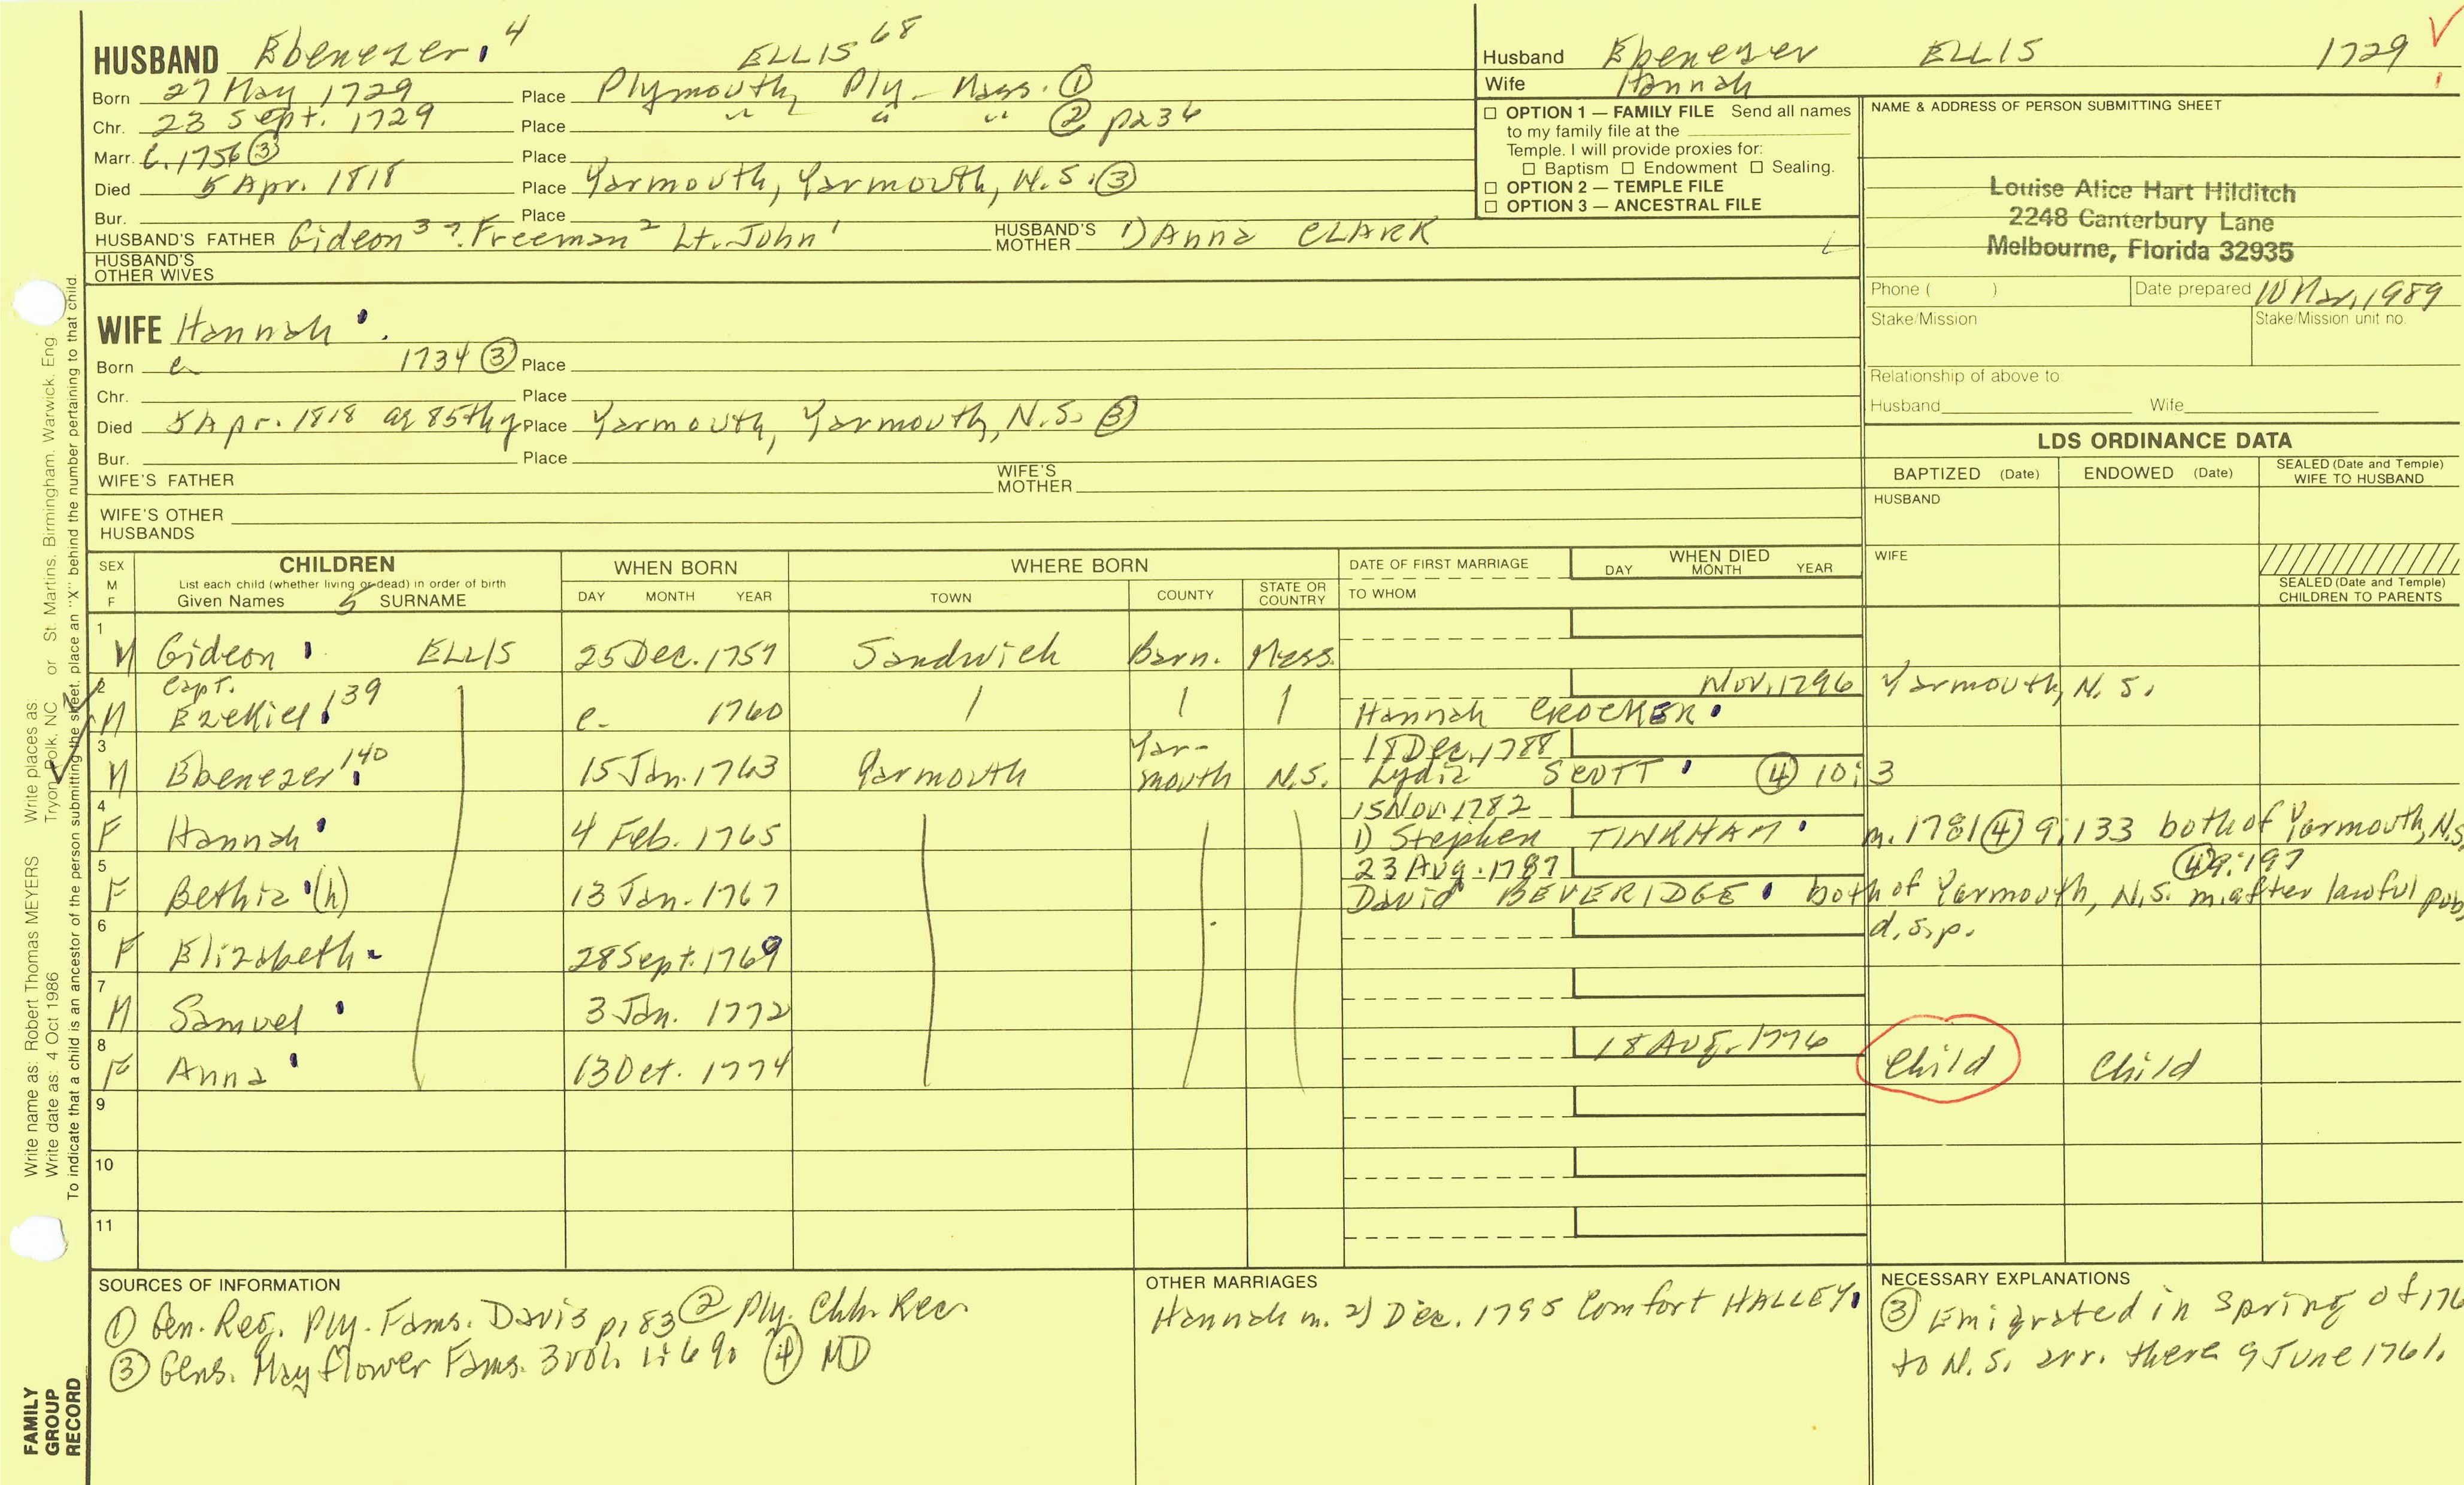 HUSBAND Ebenezer 4 ELLIS 68
Born 27 May 1729 Place Plymouth, Ply. Mass. ①
Chr. 23 Sept. 1729 Place " " " ② p236
Marr. C. 1756 ③ Place
Died 5 Apr. 1818 Place Yarmouth, Yarmouth, N.S. ③
Bur. Place
HUSBAND'S FATHER Gideon 3 ?. Freeman 2 Lt. John 1 HUSBAND'S MOTHER 1) Anna CLARK
HUSBAND'S OTHER WIVES
Husband Ebenezer ELLIS 1729
Wife Hannah
□ OPTION 1 — FAMILY FILE Send all names
to my family file at the
Temple. I will provide proxies for:
□ Baptism □ Endowment □ Sealing.
□ OPTION 2 — TEMPLE FILE
□ OPTION 3 — ANCESTRAL FILE
NAME & ADDRESS OF PERSON SUBMITTING SHEET
Louise Alice Hart Hilditch
2248 Canterbury Lane
Melbourne, Florida 32935
Phone ( ) Date prepared 10 Mar, 1989
Stake/Mission Stake/Mission unit no.
Relationship of above to
Husband Wife
WIFE Hannah
Born c 1734 ③ Place
Chr. Place
Died 5 Apr. 1818 ag 85th y Place Yarmouth, Yarmouth, N.S. ③
Bur. Place
WIFE'S FATHER WIFE'S MOTHER
WIFE'S OTHER HUSBANDS
LDS ORDINANCE DATA
BAPTIZED (Date) ENDOWED (Date) SEALED (Date and Temple) WIFE TO HUSBAND
HUSBAND
WIFE
SEALED (Date and Temple) CHILDREN TO PARENTS
SEX M F CHILDREN WHEN BORN WHERE BORN DATE OF FIRST MARRIAGE WHEN DIED
List each child (whether living or dead) in order of birth
Given Names 5 SURNAME DAY MONTH YEAR TOWN COUNTY STATE OR COUNTRY TO WHOM DAY MONTH YEAR
1 M Gideon ELLIS 25 Dec. 1757 Sandwich Barn. Mass.
2 M Capt. Ezekiel 139 c. 1760 Hannah CROCKER Nov. 1796 Yarmouth, N.S.
3 M Ebenezer 140 15 Jan. 1763 Yarmouth Yar-mouth N.S. 18 Dec. 1788 Lydia SCOTT ④ 10:3
4 F Hannah 4 Feb. 1765 15 Nov 1782 1) Stephen TINKHAM m. 1781 ④ 9:133 both of Yarmouth, N.S.
5 F Bethia (h) 13 Jan. 1767 23 Aug. 1787 David BEVERIDGE ④ 9:197 both of Yarmouth, N.S. m. after lawful pub
6 F Elizabeth 28 Sept. 1769 d.s.p.
7 M Samuel 3 Jan. 1772
8 F Anna 13 Oct. 1774 18 Aug. 1776 Child Child
9
10
11
SOURCES OF INFORMATION
① Gen. Reg. Ply. Fams. Davis p. 83 ② Ply. Chh. Rec.
③ Gens. Mayflower Fams. 3 vol. ④ MD
OTHER MARRIAGES
Hannah m. 2) Dec. 1795 Comfort HALLEY
NECESSARY EXPLANATIONS
③ Emigrated in Spring of 176
to N.S. arr. there 9 June 1761.
Write name as: Robert Thomas MEYERS Write places as: Tryon, Polk, NC or St. Martins, Birmingham, Warwick, Eng.
Write date as: 4 Oct 1986
To indicate that a child is an ancestor of the person submitting the sheet, place an "X" behind the number pertaining to that child.
FAMILY GROUP RECORD